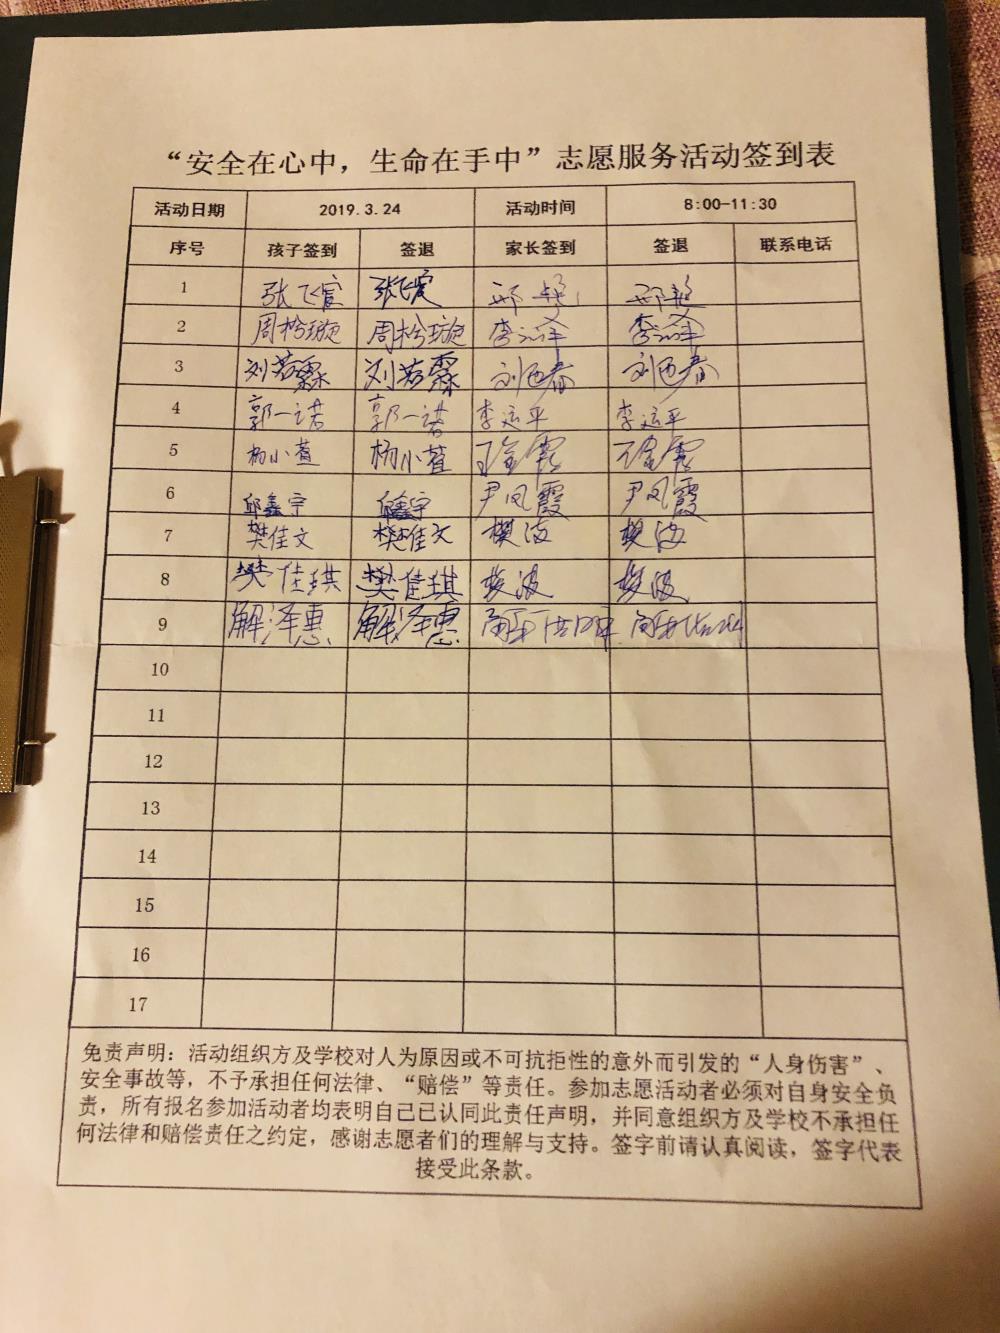 “安全在心中，生命在手中”志愿服务活动签到表
活动日期 2019.3.24 活动时间 8:00-11:30
序号 孩子签到 签退 家长签到 签退 联系电话
1 张飞宸 张飞宸 邢艳 邢艳
2 周於璇 周於璇
3 刘若霖 刘若霖 刘西春 刘西春
4 郭一诺 郭一诺 李运平 李运平
5 杨小萱 杨小萱
6 邱鑫宇 邱鑫宇 尹凤霞 尹凤霞
7 樊佳文 樊佳文 樊波 樊波
8 樊佳琪 樊佳琪 樊波 樊波
9 解泽惠 解泽惠
10
11
12
13
14
15
16
17
免责声明：活动组织方及学校对人为原因或不可抗拒性的意外而引发的“人身伤害”、
安全事故等，不予承担任何法律、“赔偿”等责任。参加志愿活动者必须对自身安全负
责，所有报名参加活动者均表明自己已认同此责任声明，并同意组织方及学校不承担任
何法律和赔偿责任之约定，感谢志愿者们的理解与支持。签字前请认真阅读，签字代表
接受此条款。